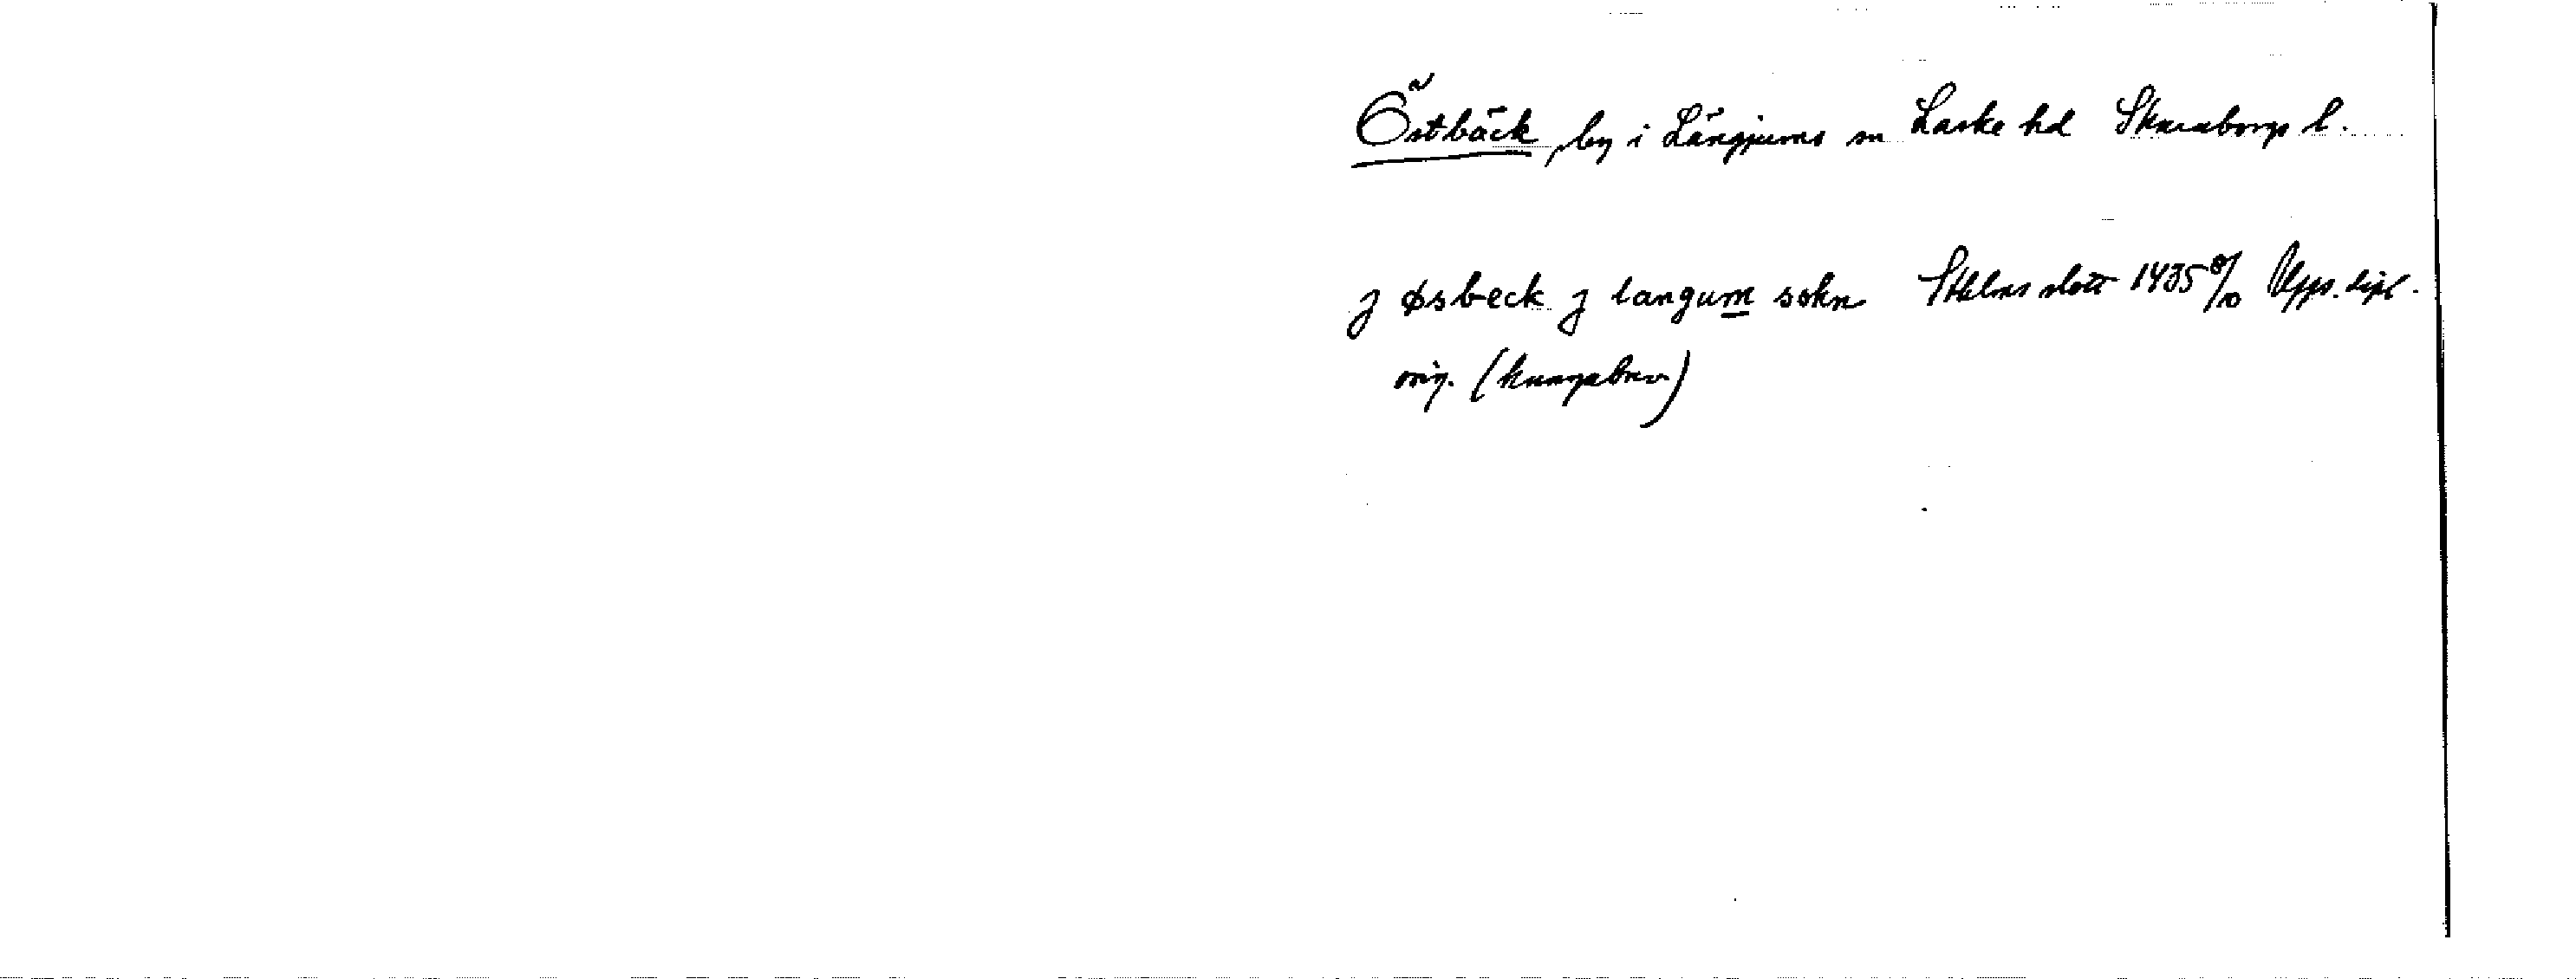 Östbäck, by i Längjums sn Laske hd Skaraborgs l.
j øsbeck j langum sokn Sthlms slott 1435 8/10 Upps. dipl.
orig. (kungabrev)